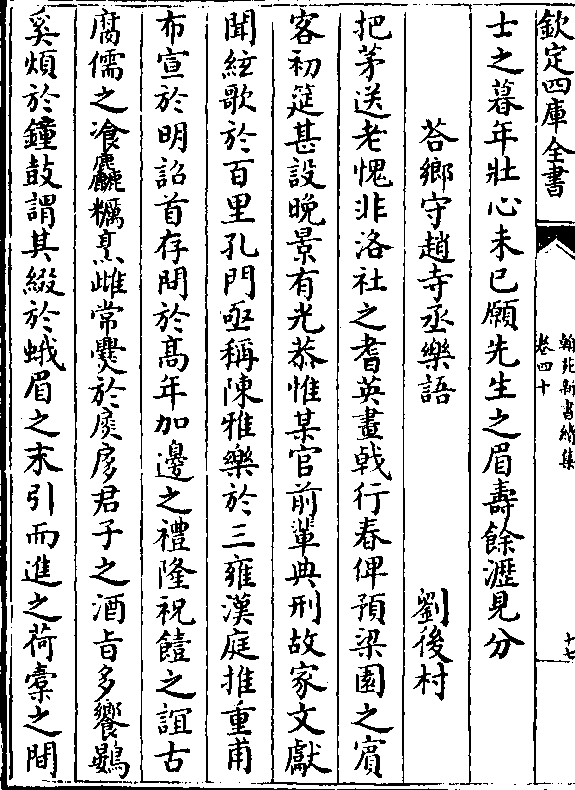 欽定四庫全書
翰苑新書續集
卷四十
十七
士之暮年壯心未已願先生之眉壽餘瀝見分
荅鄉守趙寺丞樂語
劉後村
把茅送老愧非洛社之耆英畫㦸行春俾預梁園之賔
客初筵甚設晚景有光恭惟某官前軰典刑故家文獻
聞絃歌於百里孔門亟稱陳雅樂於三雍漢庭推重甫
布宣於明詔首存問於髙年加邊之禮隆祝饐之誼古
腐儒之飡麤糲烹雌常㸑於扊扅君子之酒㫖多饗鷃
奚煩於鐘鼓謂其綴於蛾眉之末引而進之荷橐之間